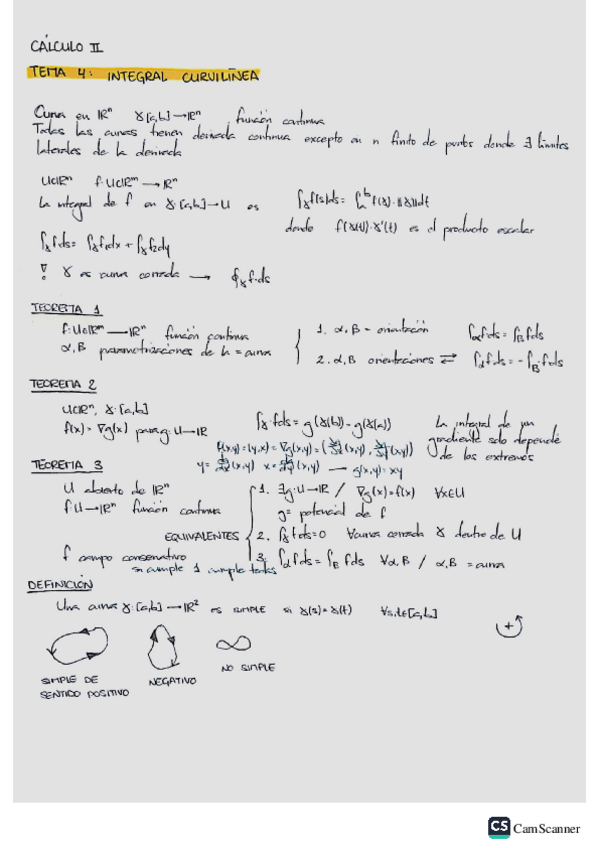 CÁLCULO II
TEMA 4: INTEGRAL CURVILÍNEA
Curva en ℝⁿ γ[a,b]→ℝⁿ, función continua
Todas las curvas tienen derivada continua excepto en n finito de puntos donde ∃ límites
laterales de la derivada
U⊂ℝⁿ f: U⊂ℝⁿ → ℝⁿ
la integral de f en γ:[a,b]→U es
donde f(γ(t))·γ'(t) es el producto escalar
∫γ f·ds = ∫γ f₁dx + ∫γ f₂dy
! γ es curva cerrada → ∮γ f·ds
TEOREMA 1
f: U⊂ℝⁿ → ℝⁿ función continua
α, B parametrizaciones de la = curva
1. α, B = orientación ∫α f·ds = ∫B f·ds
2. α, B orientaciones ⇄ ∫α f·ds = -∫B f·ds
TEOREMA 2
U⊂ℝⁿ, γ:[a,b]
f(x) = ∇g(x) para g: U→ℝ
∫γ f·ds = g(γ(b)) - g(γ(a))
La integral de un
gradiente solo depende
de los extremos
f(x,y) = (y,x) = ∇g(x,y) = (∂g/∂x (x,y), ∂g/∂y (x,y))
y = ∂g/∂x (x,y) x = ∂g/∂y (x,y) → g(x,y) = xy
TEOREMA 3
U abierto de ℝⁿ
f: U→ℝⁿ función continua
EQUIVALENTES
1. ∃g: U→ℝ / ∇g(x) = f(x) ∀x∈U
g = potencial de f
2. ∫γ f·ds = 0 ∀curva cerrada γ dentro de U
3. ∫α f·ds = ∫B f·ds ∀α, B / α, B = curva
f campo conservativo
si cumple 1 cumple todas
DEFINICIÓN
Una curva γ:[a,b] → ℝ² es SIMPLE si γ(s) = γ(t) ∀s,t∈[a,b]
+
SIMPLE DE
SENTIDO POSITIVO
NEGATIVO
NO SIMPLE
CS CamScanner